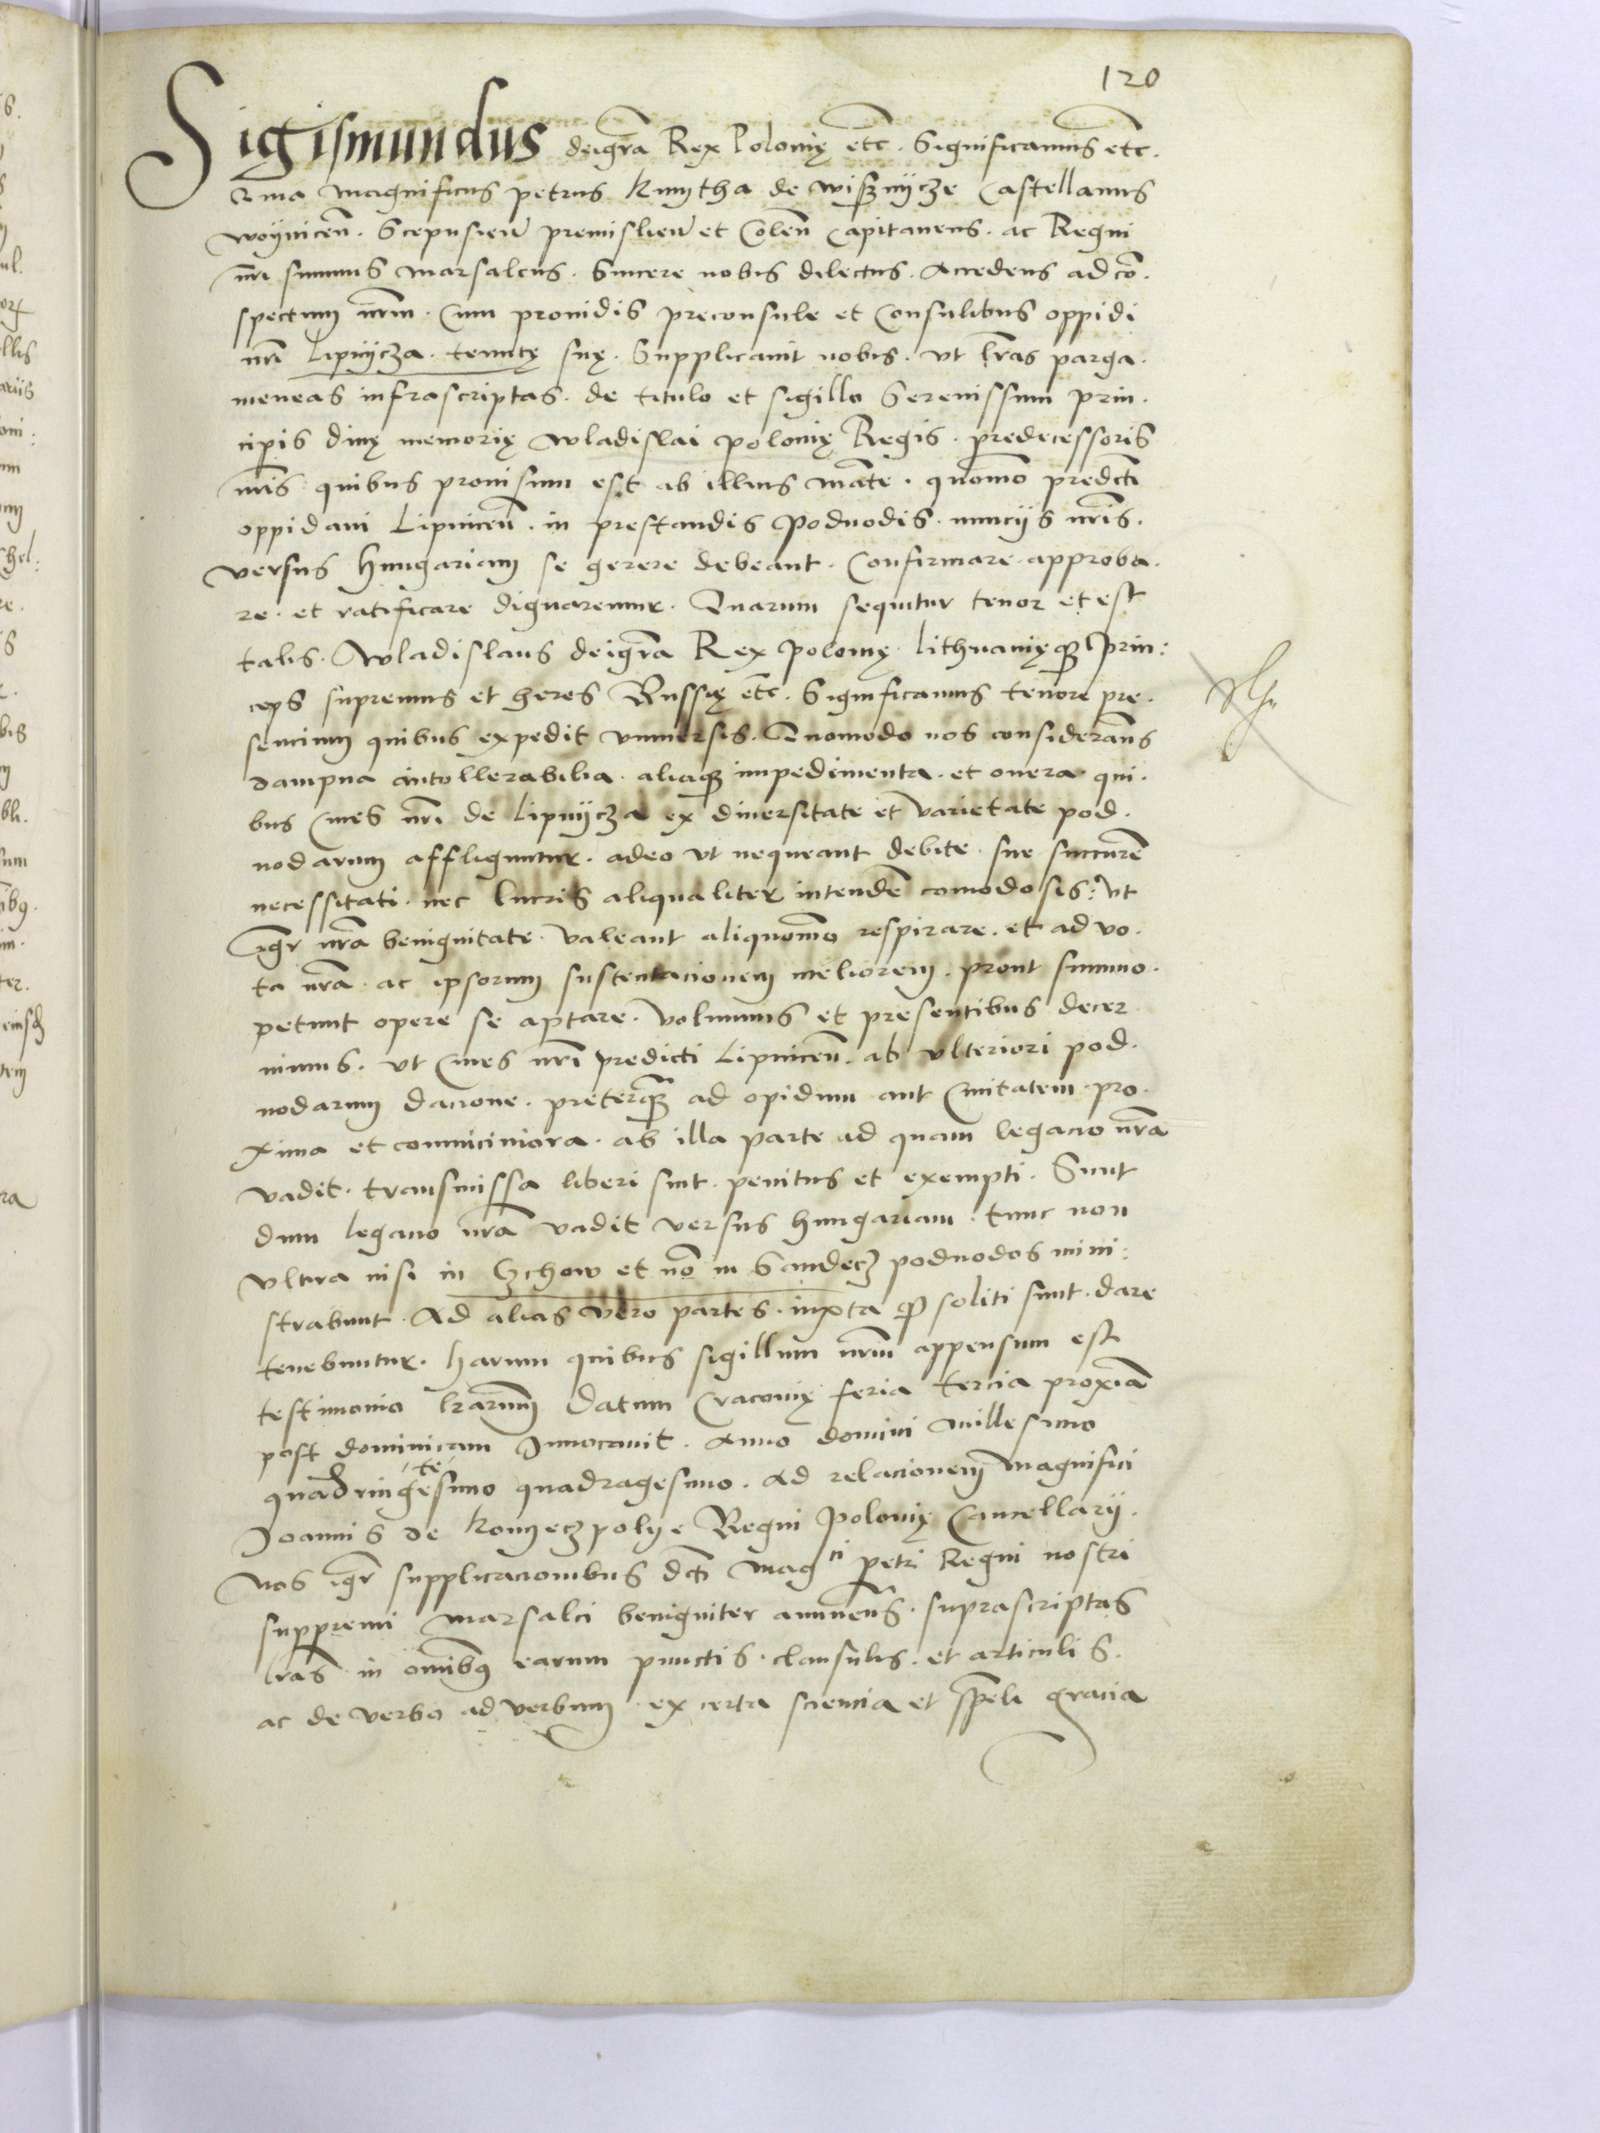 120
Sigismundus dei gra Rex Polonię etc. Significamus etc.
Quia magnificus petrus Kmytha de wisznycze Castellanus
woynicen. Scepusien premislien et Colen Capitaneus. ac Regni
nri summus marsalcus. Sincere nobis dilectus. Accedens ad con.
spectum nrm. Cum providis preconsule et Consulibus oppidi
nri Lipnycza. tenutę suę. Supplicavit nobis. ut lras parga.
meneas infrascriptas. de titulo et sigillo Serenissimi prin.
cipis divę memorię wladislai polonię Regis. predecessoris
nris quibus provisum est ab illius mate. quomo predcti
oppidani Lipnicen. in prestandis Podvodis. nunciis nris.
versus hungariam se gerere debeant. Confirmare. approba.
re. et ratificare dignaremur. Quarum sequitur tenor et est
talis. Wladislaus dei gra Rex Polonię Lithvanięq Prin:
ceps supremus et heres Russię etc. Significamus tenore pre.
sencium quibus expedit universis. Quomodo nos considerans
dampna intollerabilia. aliaq impedimenta. et onera qui.
bus Cives nri de Lipnycza ex diversitate et varietate pod.
vodarum affliguntur. adeo ut nequeant debite sue succurre
necessitati. nec lucris aliqualiter intende comodosis: Ut
igr nra benignitate. valeant aliquomo respirare. et ad vo.
ta nra. ac ipsorum sustentacionem meliorem. prout summo.
petunt opere se aptare. Volumus et presentibus decer
nimus. ut Cives nri predicti Lipnicen. ab ulteriori pod.
vodarum dacione. preterq ad opidum aut Civitatem pro.
xima et conviciniora. ab illa parte ad quam legacio nra
vadit. transmissa liberi sint. penitus et exempti. Sunt
dum legacio nra vadit versus hungariam. tunc non
ultra nisi in Czchow et no in Sandecz podvodas mini:
strabunt. Ad alias vero partes. iuxta q soliti sunt. dare
tenebuntur. harum quibus sigillum nrm appensum est
testimonio lrarum Datum Cracovię feria tercia proxia
post dominicam Invocavit. Anno domini Millesimo
quadringetesimo quadragesimo. Ad relacionem Magnifici
Joannis de Konyeczpolye Regni Polonię Cancellarii.
Nos igr supplicacionibus dcti magci petri Regni nostri
suppremi Marsalci benigniter annuens. suprascriptas
lras in omnibus earum punctis. clausulis. et articulis.
ac de verbo ad verbum. ex certa sciencia et speli gracia